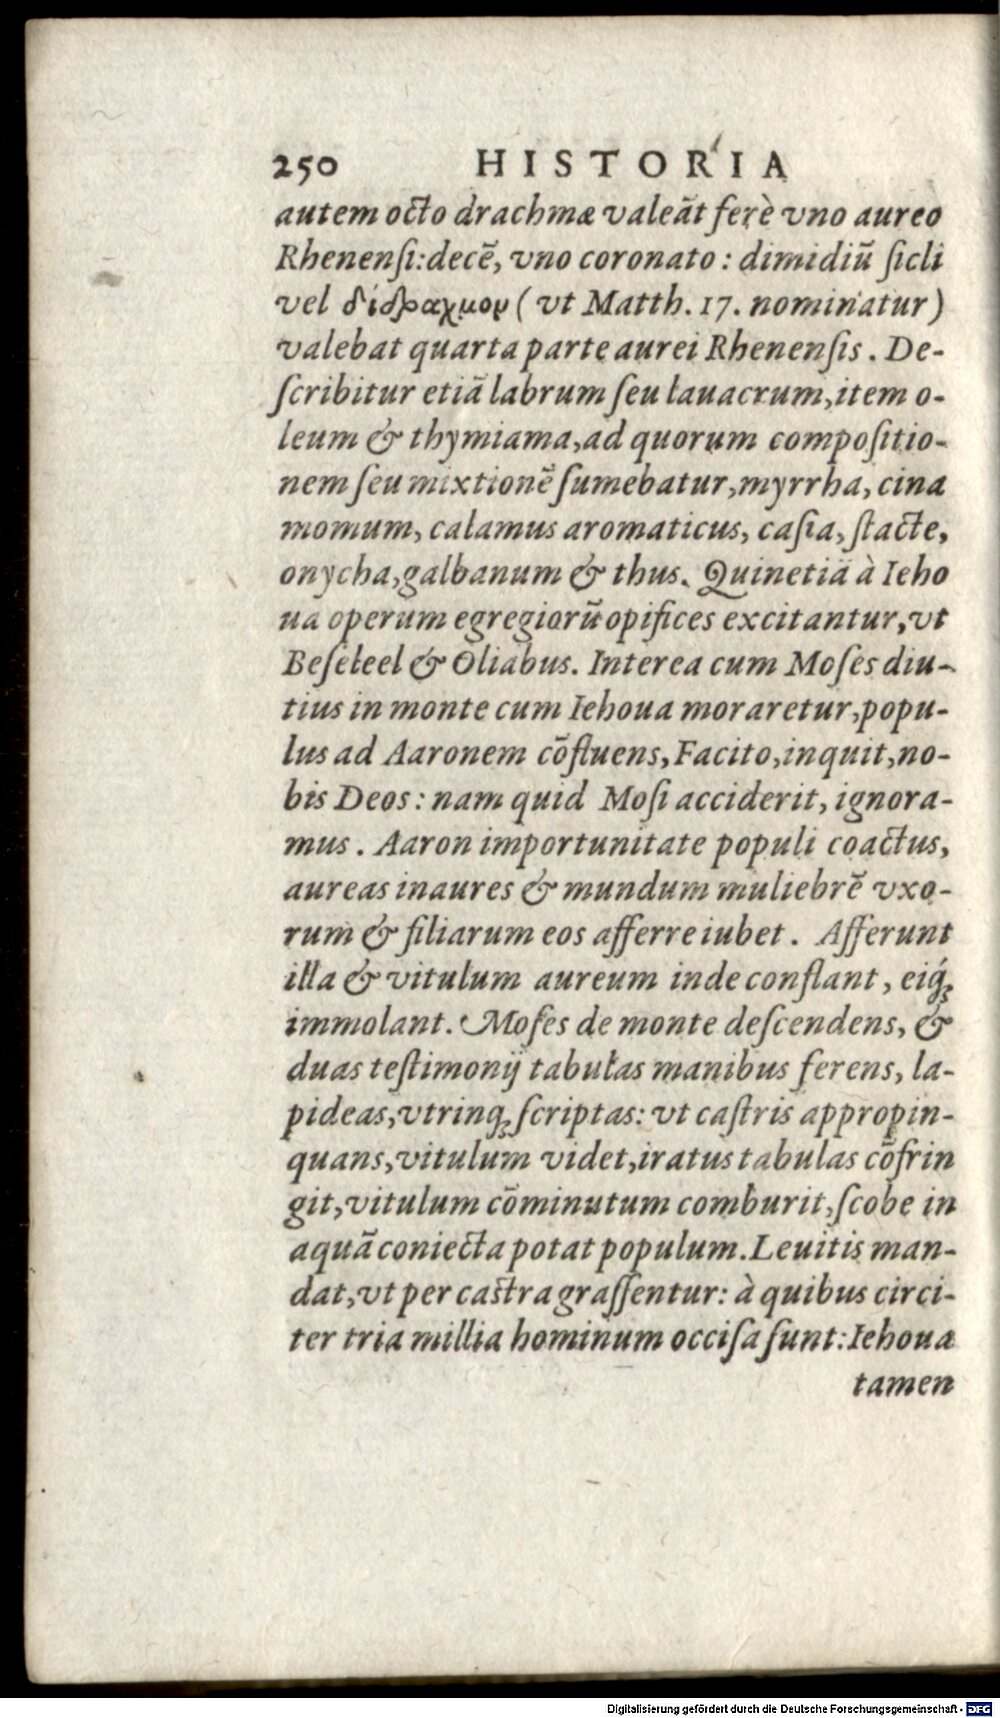 250 HISTORIA
autem octo drachmæ valeāt ferè vno aureo
Rhenenſi:decē, vno coronato : dimidiū ſicli
vel δίδραχμον ( vt Matth. 17. nominatur )
valebat quarta parte aurei Rhenenſis . De-
ſcribitur etiā labrum ſeu lauacrum,item o-
leum & thymiama,ad quorum compoſitio-
nem ſeu mixtionē ſumebatur,myrrha, cina
momum, calamus aromaticus, caſia, ſtacte,
onycha,galbanum & thus. Quinetiā à Ieho
ua operum egregiorū opifices excitantur,vt
Beſeleel & Oliabus. Interea cum Moſes diu-
tius in monte cum Iehoua moraretur,popu-
lus ad Aaronem cōfluens, Facito,inquit,no-
bis Deos : nam quid Moſi acciderit, ignora-
mus . Aaron importunitate populi coactus,
aureas inaures & mundum muliebrē vxo-
rum & filiarum eos afferre iubet . Afferunt
illa & vitulum aureum inde conflant , eiq́;
immolant. Moſes de monte deſcendens, &
duas teſtimonij tabulas manibus ferens, la-
pideas,vtrinq; ſcriptas: vt caſtris appropin-
quans,vitulum videt,iratus tabulas cōfrin
git,vitulum cōminutum comburit,ſcobe in
aquā coniecta potat populum.Leuitis man-
dat,vt per caſtra graſſentur: à quibus circi-
ter tria millia hominum occiſa ſunt:Iehoua
tamen
Digitalisierung gefördert durch die Deutsche Forschungsgemeinschaft - DFG